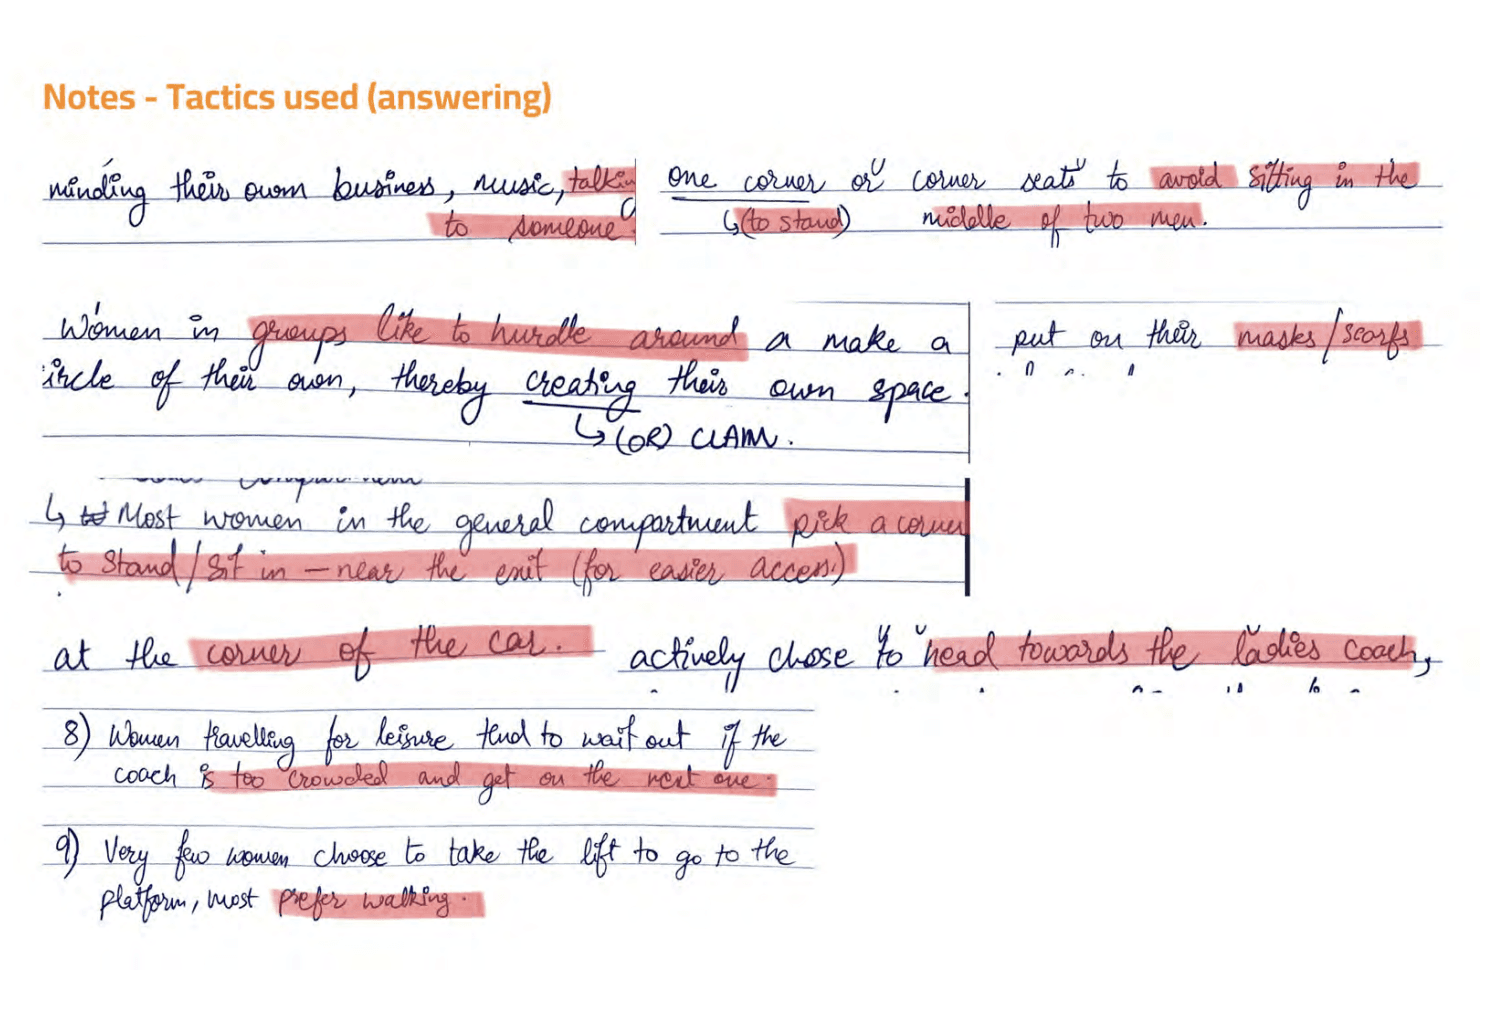 Notes - Tactics used (answering)
minding their own business, music, talkin
to someone.
one corner or corner seats to avoid sitting in the
↳(to stand) middle of two men.
Women in groups like to hurdle around a make a
ircle of their own, thereby creating their own space.
↳(OR) CLAIM.
put on their masks/scarfs
↳ Most women in the general compartment pick a corner
to stand/sit in – near the exit (for easier access)
at the corner of the car.
actively chose to head towards the ladies coach,
8) Women travelling for leisure tend to wait out if the
coach is too crowded and get on the next one.
9) Very few women choose to take the lift to go to the
platform, most prefer walking.